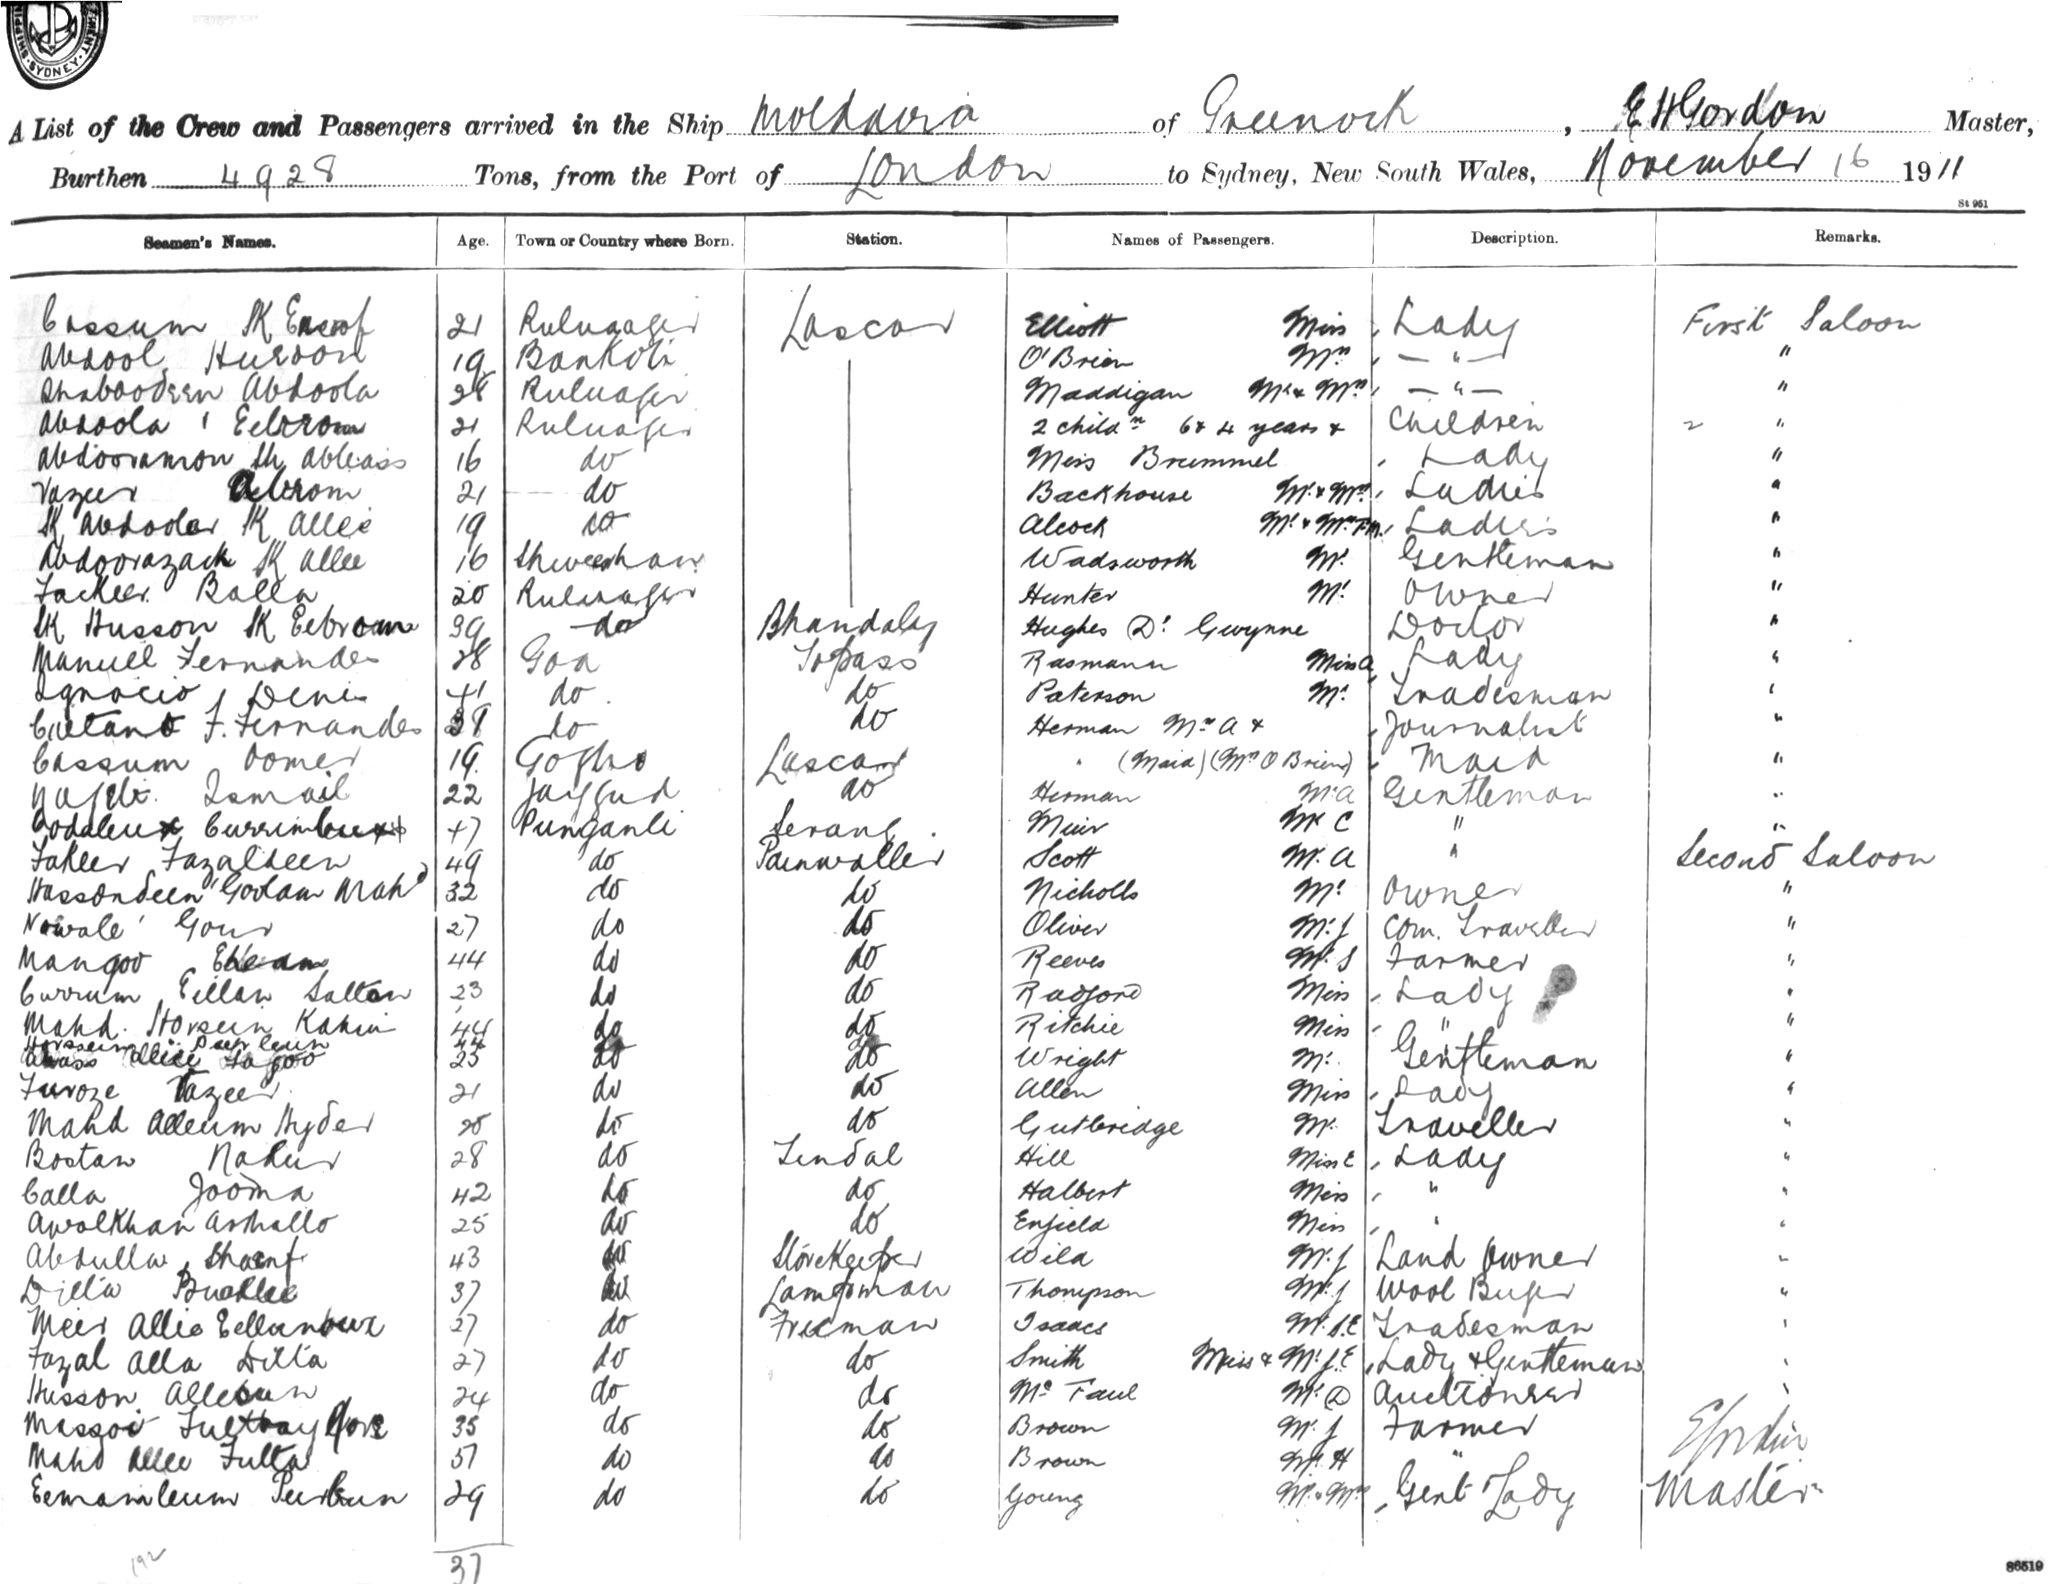 SYDNEY
A List of the Crew and Passengers arrived in the Ship Moldavia of Greenock, E H Gordon Master,
Burthen 4928 Tons, from the Port of London to Sydney, New South Wales, November 16 1911
St 951
Seamen's Names. Age. Town or Country where Born. Station. Names of Passengers. Description. Remarks.
Cassum SK 21 Lascar Elliott Miss, Lady First Saloon
Abdool 19 Bankoti O'Brien Mrs, — " — "
Shaboodeen Abdoola 28 Maddigan Mr & Mrs, — " — "
Abdoola Eebrom 21 2 childn 6 & 4 years & Children "
16 do Miss Brummel, Lady "
Vazeer Eebrom 21 do Backhouse Mr & Mrs, Ladies "
SK SK Allie 19 do Alcock Mr & Mrs, Ladies "
Abdoorazack SK Allee 16 Wadsworth Mr Gentleman "
Fackeer Balla 20 Hunter Mr Owner "
SK Husson SK Eebroam 39 do Bhandary Hughes Dr Gwynne Doctor "
Manuel Fernandes 28 Goa Topass Rasmann Miss A, Lady "
Ignacio Denis 41 do do Paterson Mr Tradesman "
Caetano F. Fernandes 38 do do Herman Mrs A &, Journalist "
Cassum Oomer 19 Gogho Lascar " (Maid) (Mrs O'Brien), Maid "
Ismail 22 Jaygud do Herman Mr A Gentleman "
47 Punjaub Serang Muir Mr C " "
Fakeer Fazaldeen 49 do Painwaller Scott Mr A " Second Saloon
Hassondeen Goolam Mahd 32 do do Nicholls Mr Owner "
Nowale Gour 27 do do Oliver Mr J Com. Traveller "
Mangoo 44 do do Reeves Mr S Farmer "
Currum Eillan Sultan 23 do do Radford Miss, Lady "
Mahd. Hossein Karim 44 do do Ritchie Miss, " "
Hossein 44 do
25 do do Wright Mr Gentleman "
Furoze Vazeer 21 do do Allen Miss, Lady "
Mahd Alleum Hyder 20 do do Gutbridge Mr Traveller "
Bostan Nahur 28 do Tindal Hill Miss E, Lady "
Calla Jooma 42 do do Halbert Miss, " "
Awalkhan 25 do do Enfield Miss, " "
Abdulla 43 do Storekeeper Wild Mr J Land Owner "
Ditta 37 do Lampman Thompson Mr J Wool Buyer "
Meer Allie 27 do Fireman Isaacs Mr S.E Tradesman "
Fazal Alla Ditta 27 do do Smith Miss & Mr J.E, Lady & Gentleman "
Husson 24 do do Mc Faul Mr D Auctioneer "
35 do do Brown Mr J Farmer
Mahd Allee Futta 51 do do Brown Mr H "
29 do do Young Mr & Mrs, Gent & Lady
E Gordon
Master
192
37
86519